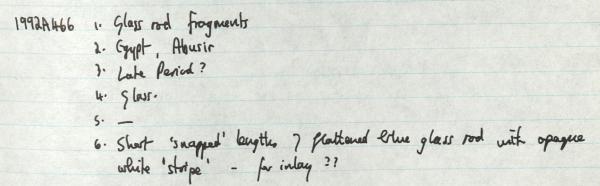 1992A466 1. Glass rod fragments
2. Egypt, Abusir
3. Late Period?
4. Glass.
5. —
6. Short 'snapped' lengths of flattened blue glass rod with opaque
white 'stripe' - for inlay ??